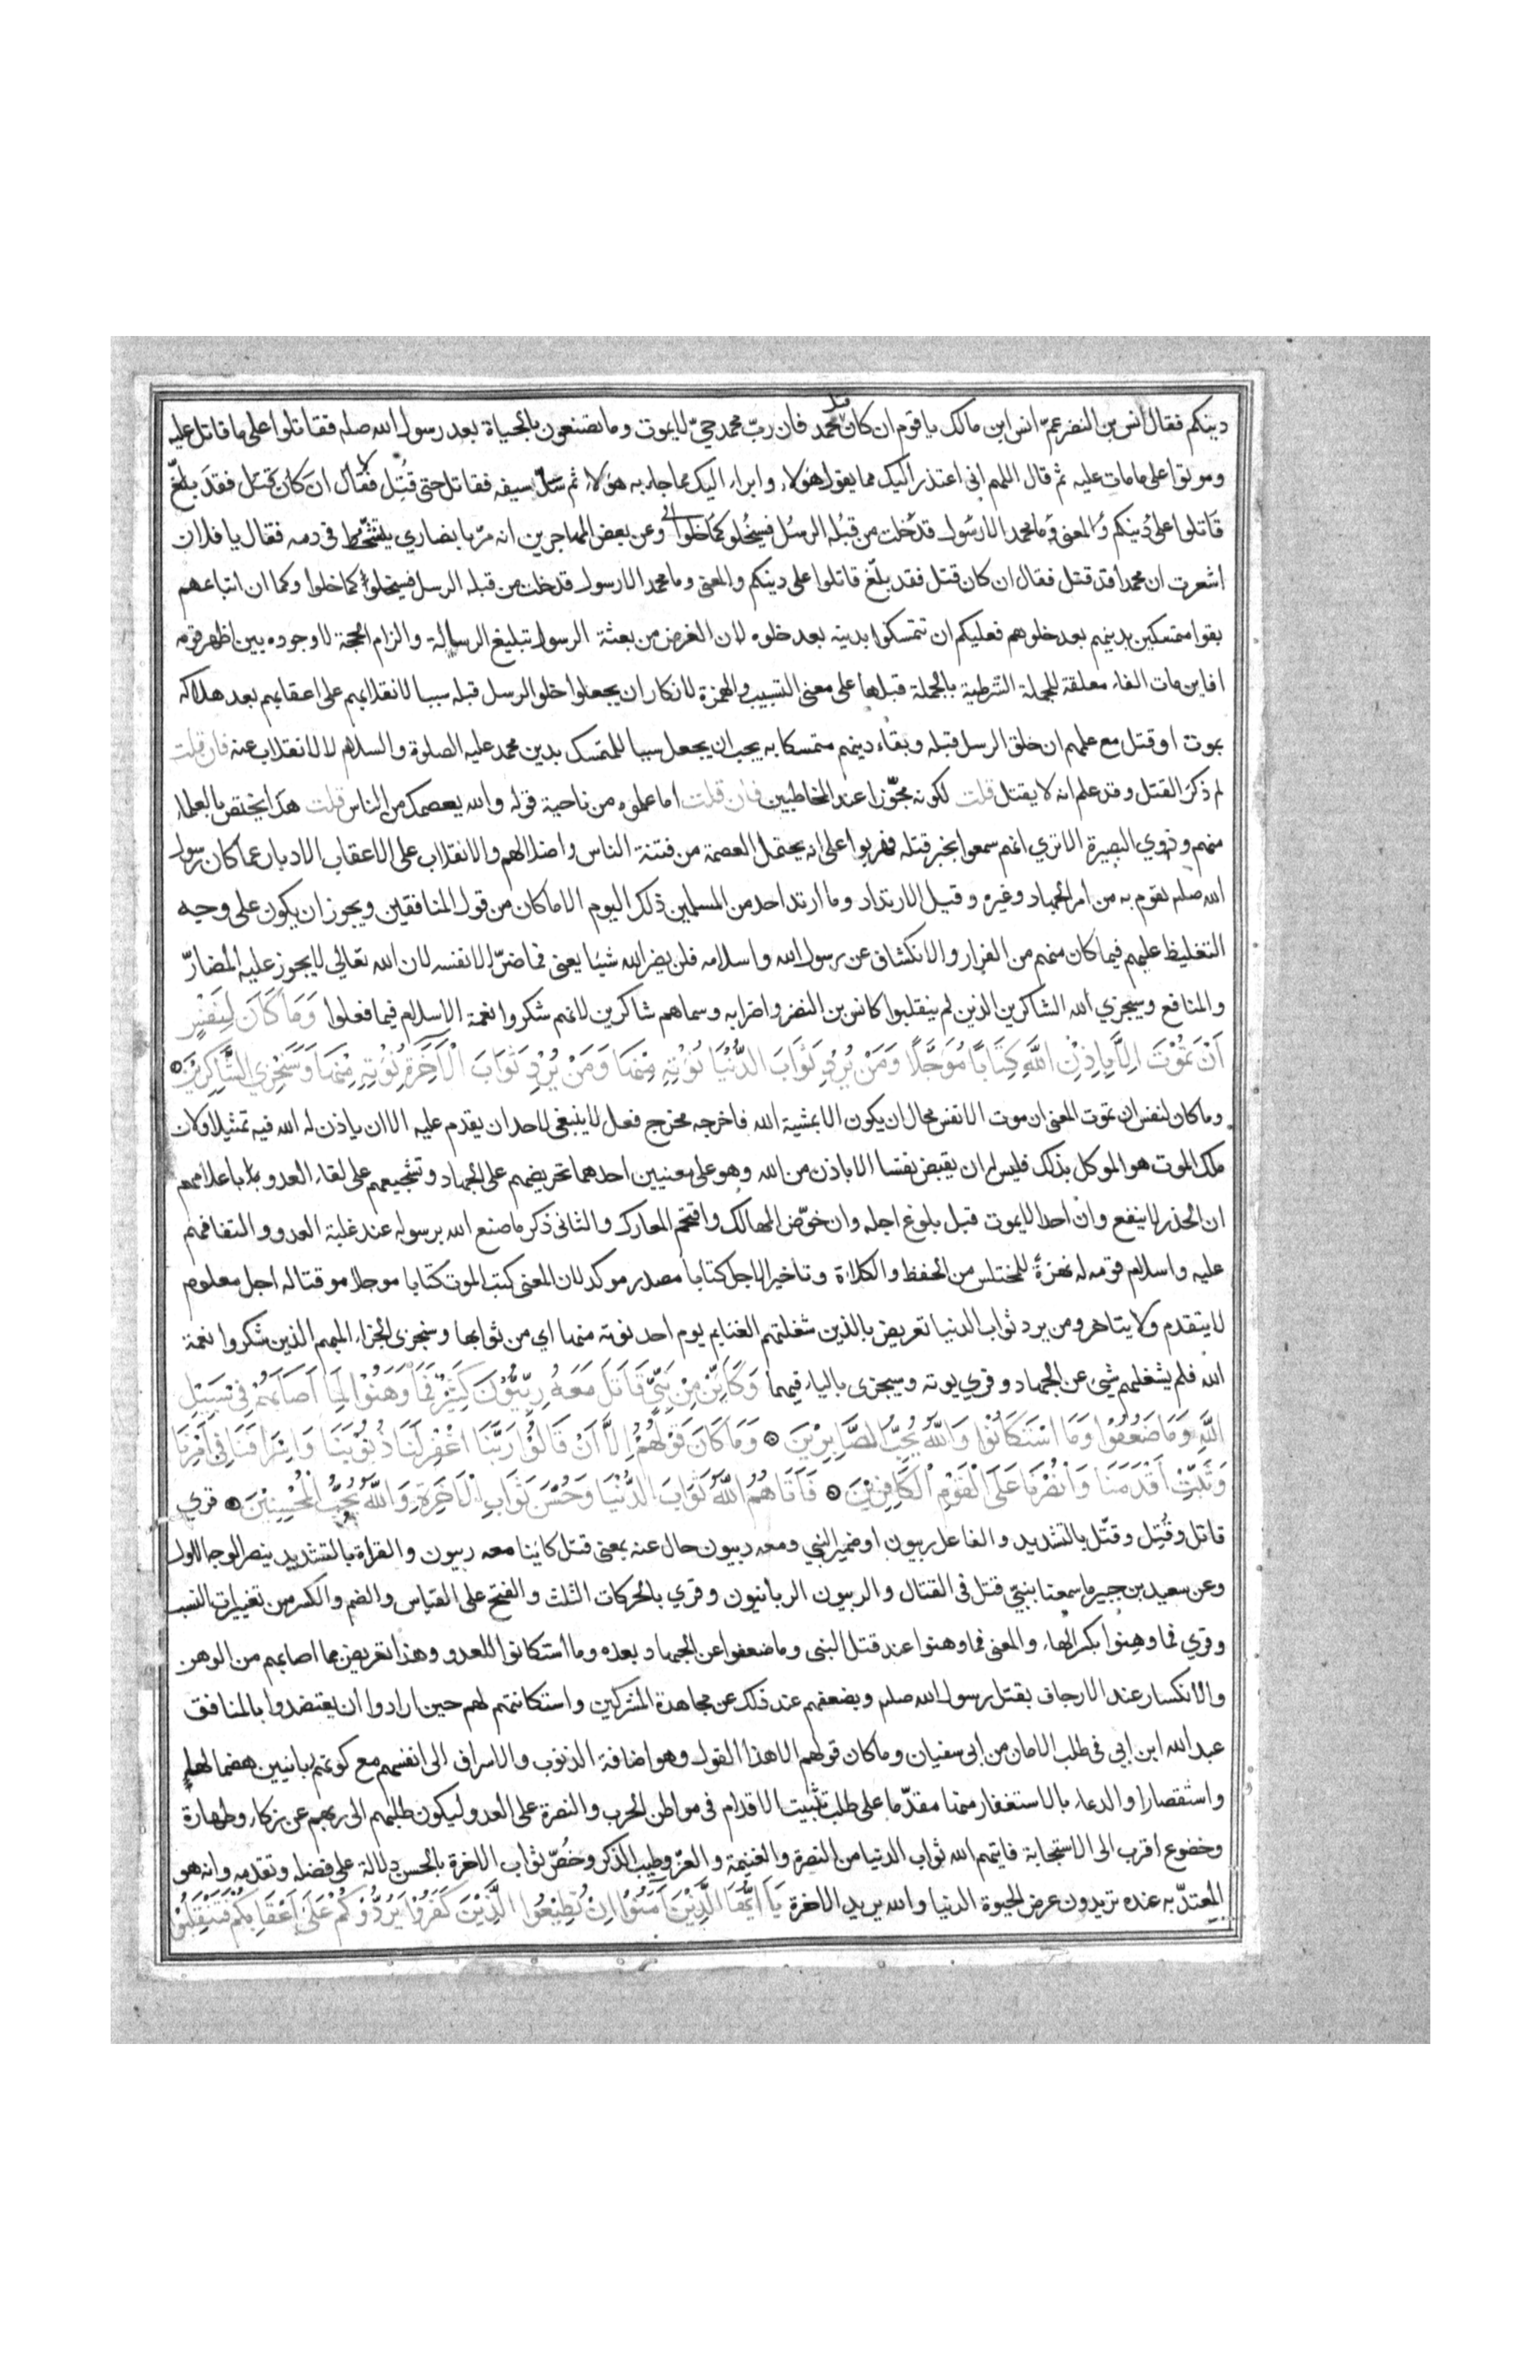 دينكم فقال انس بن النضر عمّ انس ابن مالك يا قوم ان كان قتل محمد فان ربّ محمد حيّ لا يموت وما تصنعون بالحياة بعد رسول الله صلم فقاتلوا على ما قاتل عليه
وموتوا على ما مات عليه ثم قال اللهم انى اعتذر اليك مما يقول هؤلاء وابراء اليك مما جاء به هؤلاء ثم سلّ سيفه فقاتل حتى قُتِل فقال ان كان قتل فقد بلّغ
قاتلوا على دينكم والمعنى وما محمد الا رسول قد خلت من قبله الرسل فسيخلو كما خلوا الى وعن بعض المهاجرين انه مرّ بانصاري يتشحّط فى دمه فقال يا فلان
اشعرت ان محمدا قد قتل فقال ان كان قتل فقد بلّغ قاتلوا على دينكم والمعنى وما محمد الا رسول قد خلت من قبله الرسل فسيخلوا كما خلوا وكما ان اتباعهم
بقوا متمسكين بدينهم بعد خلوهم فعليكم ان تتمسكوا بدينه بعد خلوه لان الغرض من بعثة الرسول تبليغ الرسالة والزام الحجة لا وجوده بين اظهر قومه
افاين مات الفاء معلقة للجملة الشرطية بالجملة قبلها على معنى التسبيب والهمزة لانكار ان يجعلوا خلو الرسل قبله سببا لانقلابهم على اعقابهم بعد هلاكه
بموت او قتل مع علمهم ان خلق الرسل قبله وبقاء دينهم متمسكا به يجب ان يجعل سببا للتمسك بدين محمد عليه الصلوة والسلام لا لانقلاب عنه فان قلت
لم ذكر القتل وقد علم انه لا يقتل قلت لكونه مجوّزا عند المخاطبين فان قلت اما علموه من ناحية قوله والله يعصمك من الناس قلت هذا يختص بالعلماء
منهم وذوي البصيرة الا تري انهم سمعوا بخبر قتله فهربوا على انه يحتمل العصمة من فتنة الناس واضلالهم والانقلاب على الاعقاب الادبار عما كان رسول
الله صلم يقوم به من امر الجهاد وغيره وقيل الارتداد وما ارتد احد من المسلمين ذلك اليوم الا ما كان من قول المنافقين ويجوز ان يكون على وجه
التغليظ عليهم فيما كان منهم من الفرار والانكشاف عن رسول الله واسلامه فلن يضر الله شيئا يعنى فما ضرّ الا نفسه لان الله تعالي لا يجوز عليه المضارّ
والمنافع وسيجزي الله الشاكرين الذين لم ينقلبوا كانس بن النضر واضرابه وسماهم شاكرين لانهم شكروا نعمة الاسلام فيما فعلوا وَمَا كَانَ لِنَفْسٍ
اَنْ تَمُوْتَ اِلَّا بِاِذْنِ اللَّهِ كِتَابًا مُؤَجَّلًا وَمَنْ يُرِدْ ثَوَابَ الدُّنْيَا نُؤْتِهِ مِنْهَا وَمَنْ يُرِدْ ثَوَابَ الْاَخَرَةِ نُؤْتِهِ مِنْهَا وَسَنَجْزِي الشَّاكِرِيْنَ
وما كان لنفس ان تموت المعنى ان موت الانفس محال ان يكون الا بمشية الله فاخرجه مخرج فعل لا ينبغى لاحد ان يقدم عليه الا ان ياذن له الله فيه تمثيلا ولان
ملك الموت هو الموكل بذلك فليس له ان يقبض نفسا الا باذن من الله وهو على معنيين احدهما تحريضهم على الجهاد وتشجيعهم على لقاء العدو باعلامهم
ان الحذر لا ينفع وان احدا لا يموت قبل بلوغ اجله وان خوّض المهالك واقتحم المعارك والثانى ذكر ما صنع الله برسوله عند غلبة العدو والتفافهم
عليه واسلام قومه له نهزةً للمختلس من الحفظ والكلاة وتاخير الاجل كتابا مصدر موكد لان المعنى كتب الموت كتابا موجلا موقتا له اجل معلوم
لا يتقدم ولا يتاخر ومن يرد ثواب الدنيا تعريض بالذين شغلتهم الغنايم يوم احد نوته منها اي من ثوابها وسنجزى الجزاء المبهم الذين شكروا نعمة
الله فلم يشغلهم شئ عن الجهاد وقري يوته وسيجزى بالياء فيهما وَكَاَيِّنْ مِنْ نَبِيٍّ قَاتَلَ مَعَهُ رِبِّيُّوْنَ كَثِيْرٌ فَمَا وَهَنُوْا لِمَا اَصَابَهُمْ فِىْ سَبِيْلِ
اللَّهِ وَمَا ضَعُفُوْا وَمَا اسْتَكَانُوْا وَاللَّهُ يُحِبُّ الصَّابِرِيْنَ وَمَا كَانَ قَوْلَهُمْ اِلَّا اَنْ قَالُوْا رَبَّنَا اغْفِرْ لَنَا ذُنُوْبَنَا وَاِسْرَافَنَا فِىْ اَمْرِنَا
وَثَبِّتْ اَقْدَمَنَا وَانْصُرْنَا عَلَى الْقَوْمِ الْكَافِرِيْنَ فَآتَاهُمُ اللَّهُ ثَوَابَ الدُّنْيَا وَحُسْنَ ثَوَابِ الْاَخَرَةِ وَاللَّهُ يُحِبُّ الْمُحْسِنِيْنَ قري
قاتل وقُتِل وقتّل بالتشديد والفاعل ربيون او ضمير النبي ومعه ربيون حال عنه بمعنى قتل كاينا معه ربيون والقراة بالتشديد ينصر الوجه الاول
وعن سعيد بن جبير ما سمعنا بنبيّ قتل فى القتال والربيون الربانيون وقري بالحركات الثلث والفتح على القياس والضم والكسر من تغييرات النسب
وقري فما وهِنوا بكسر الهاء والمعنى فما وهنوا عند قتل النبى وما ضعفوا عن الجهاد بعده وما استكانوا للعدو وهذا تعريض مما اصابهم من الوهن
والانكسار عند الارجاف بقتل رسول الله صلم وبضعفهم عند ذلك عن مجاهدة المشركين واستكانتهم لهم حين ارادوا ان يعتضدوا بالمنافق
عبد الله ابن ابي فى طلب الامان من ابى سفيان وما كان قولهم الا هذا القول وهو اضافة الذنوب والاسراف الى انفسهم مع كونهم ربانيين هضما لها
واستقصارا والدعاء بالاستغفار منها مقدّما على طلب تثبيت الاقدام فى مواطن الحرب والنصرة على العدو ليكون طلبهم الى ربهم عن زكاء وطهارة
وخضوع اقرب الى الاستجابة فاتيهم الله ثواب الدنيا من النصرة والغنيمة والعزّ وطيب الذكر وخُصّ ثواب الاخرة بالحسن دلالة على فضله وتقدمه وانه هو
المعتدّ به عنده تريدون عرض الحيوة الدنيا والله يريد الاخرة يَا اَيُّهَا الَّذِيْنَ آمَنُوْا اِنْ تُطِيْعُوا الَّذِيْنَ كَفَرُوْا يَرُدُّوْكُمْ عَلَى اَعْقَابِكُمْ فَتَنْقَلِبُوْا